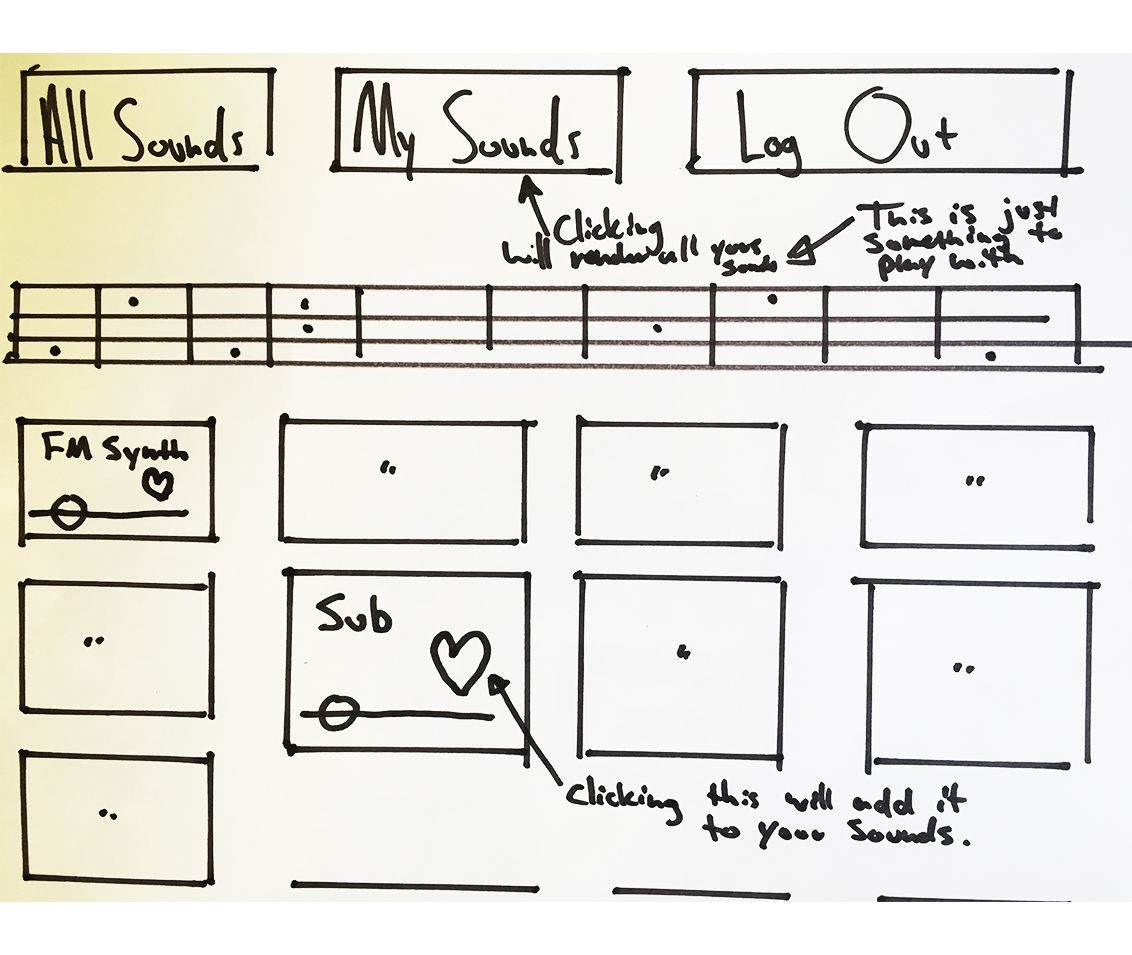 All Sounds
My Sounds
Log Out
Clicking
will render all your
sounds
This is just
something to
play with
FM Synth
"
"
"
"
Sub
"
"
"
Clicking this will add it
to your Sounds.